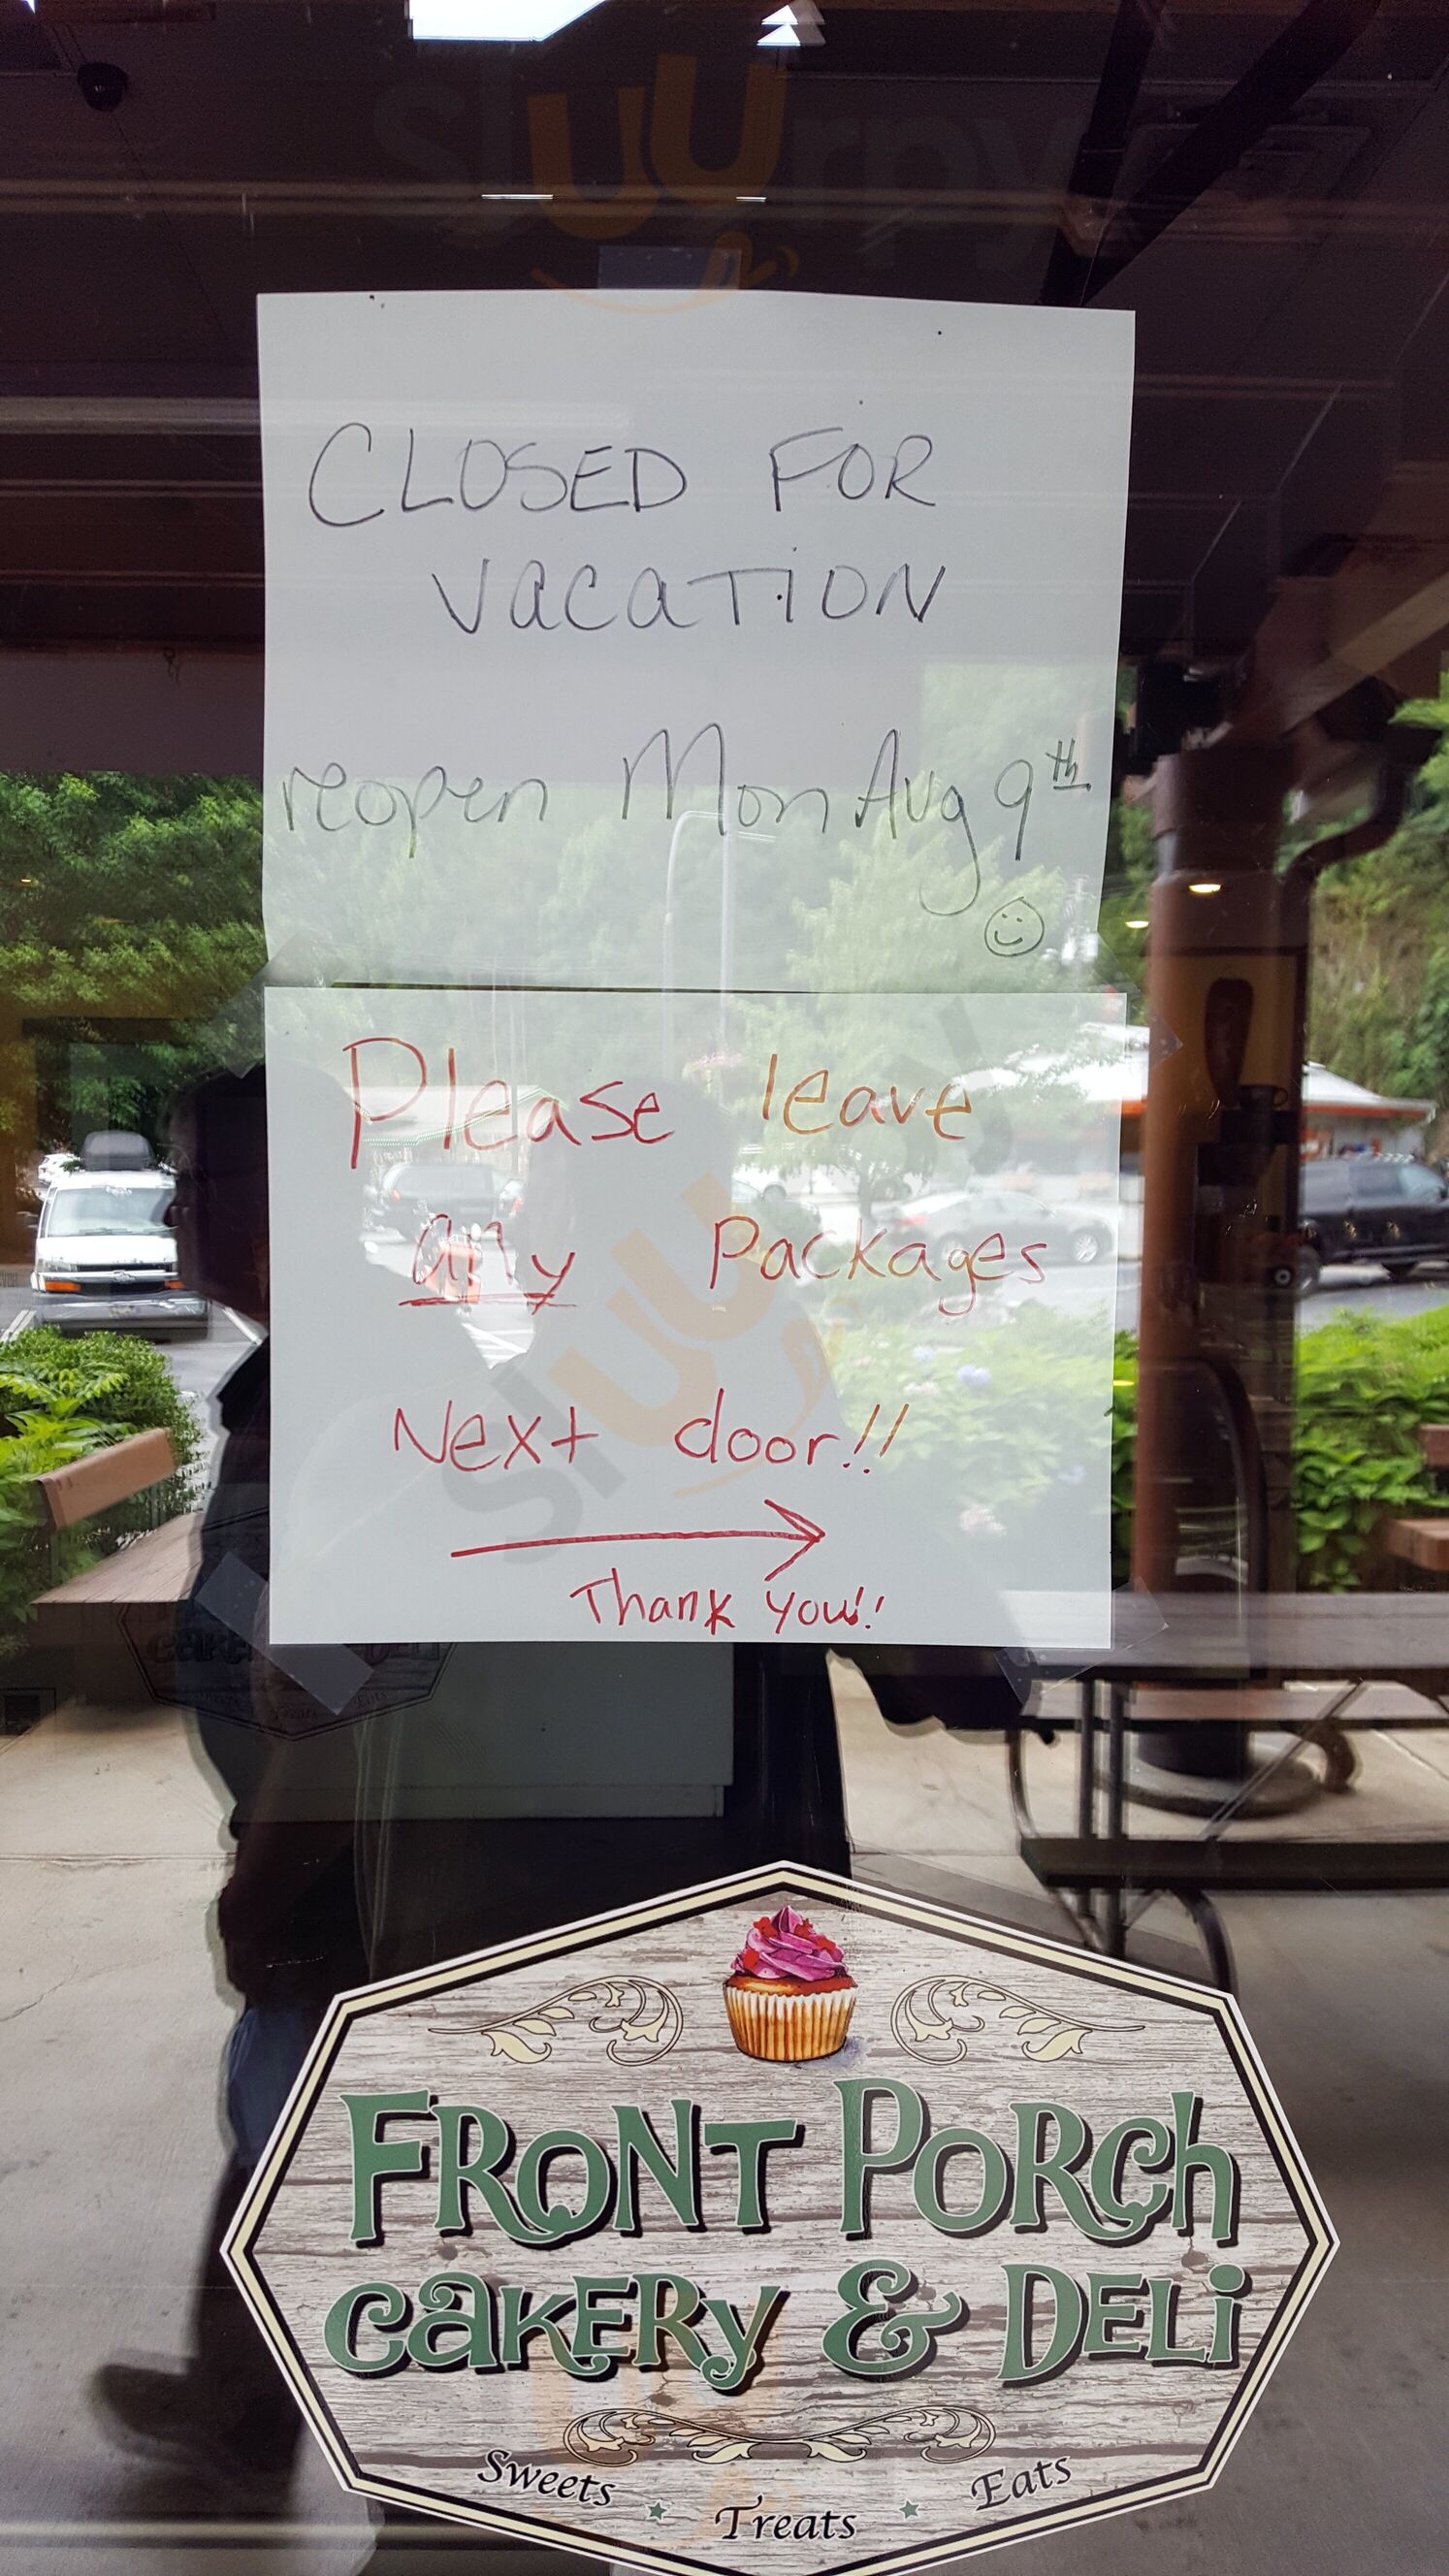 sluurpy
CLOSED FOR
VacaTiON
reopen Mon Aug 9th
Please leave
any Packages
Next door!!
Thank you!!
sluurpy
FRONT PORCh
CaKERy & DELi
Sweets Treats Eats